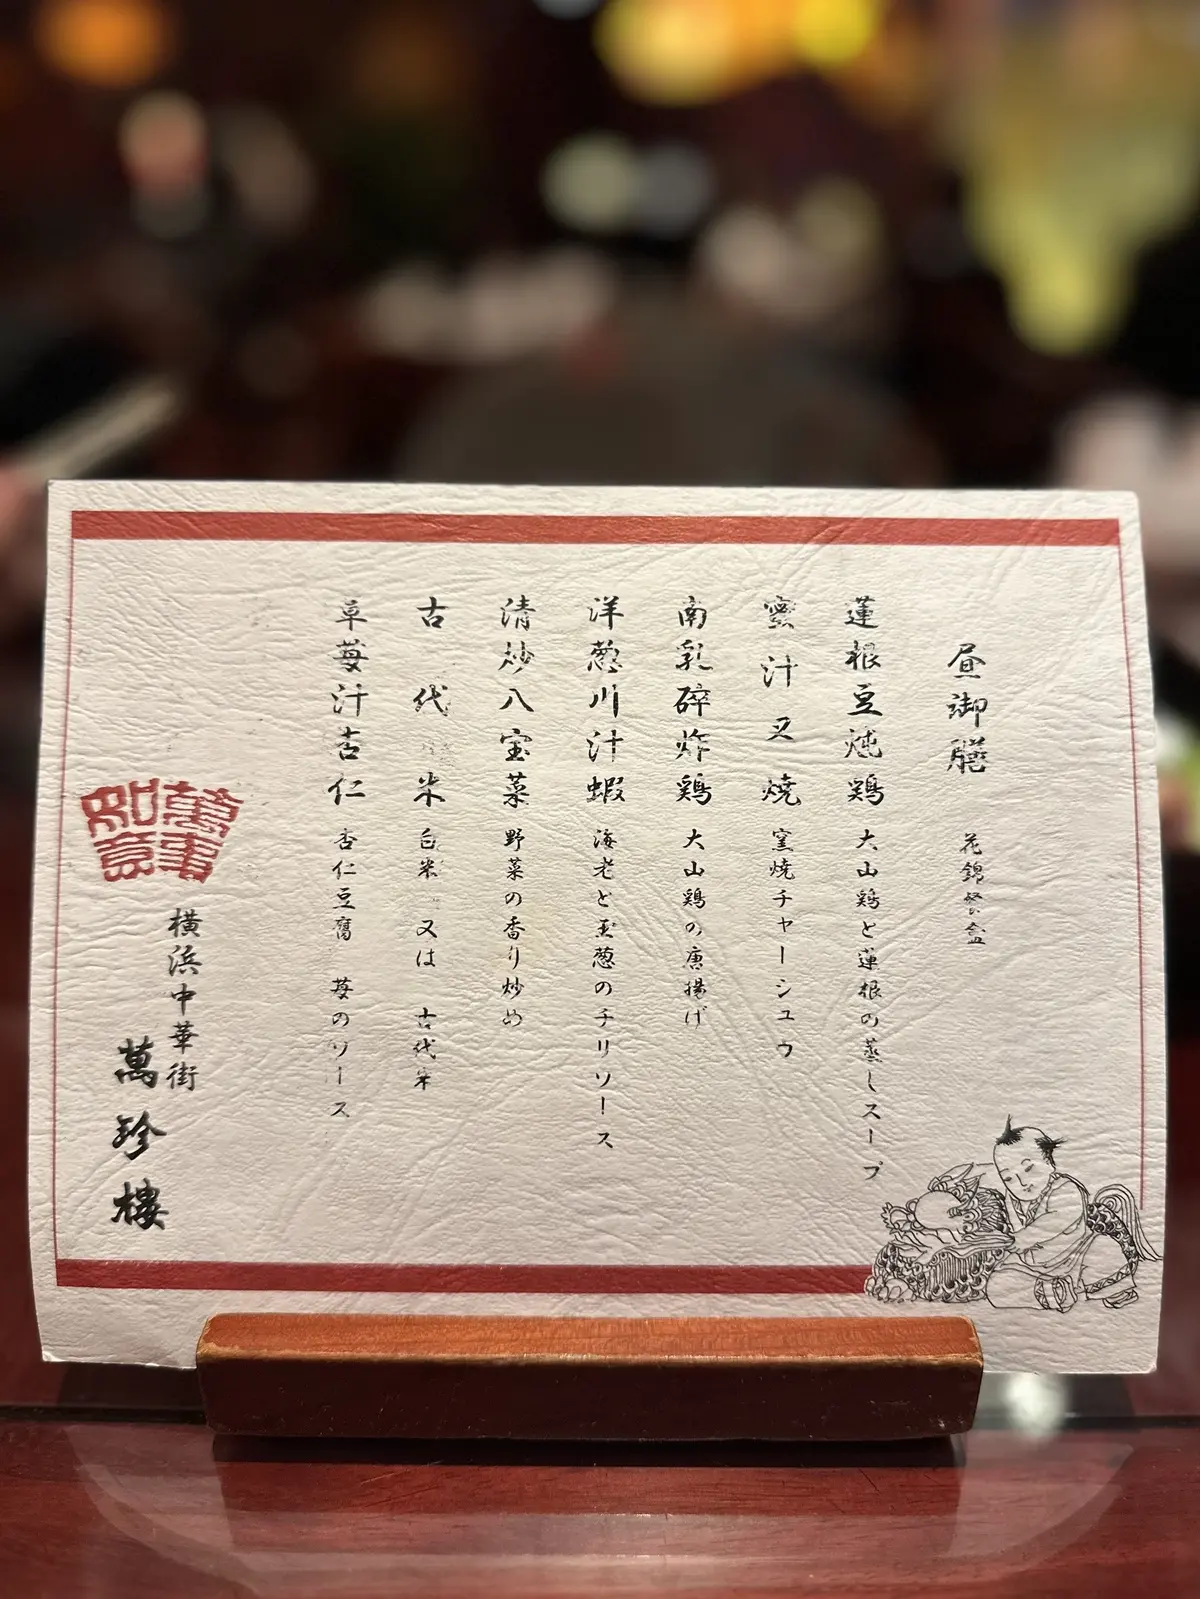 昼御膳 花錦餐盒
蓮根豆炖鶏 大山鶏と蓮根の蒸しスープ
蜜汁叉焼 窯焼チャーシュウ
南乳碎炸鶏 大山鶏の唐揚げ
洋葱川汁蝦 海老と玉葱のチリソース
清炒八宝菜 野菜の香り炒め
古代米 白米 又は 古代米
草苺汁杏仁 杏仁豆腐 苺のソース
萬事如意
横浜中華街
萬珍樓